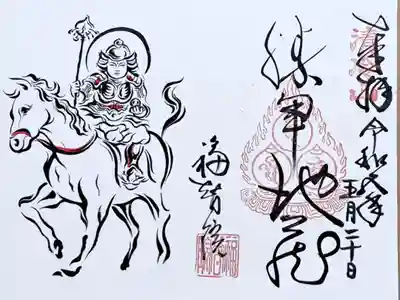 奉拝 令和六年
五月二十日
勝軍地蔵
福智院